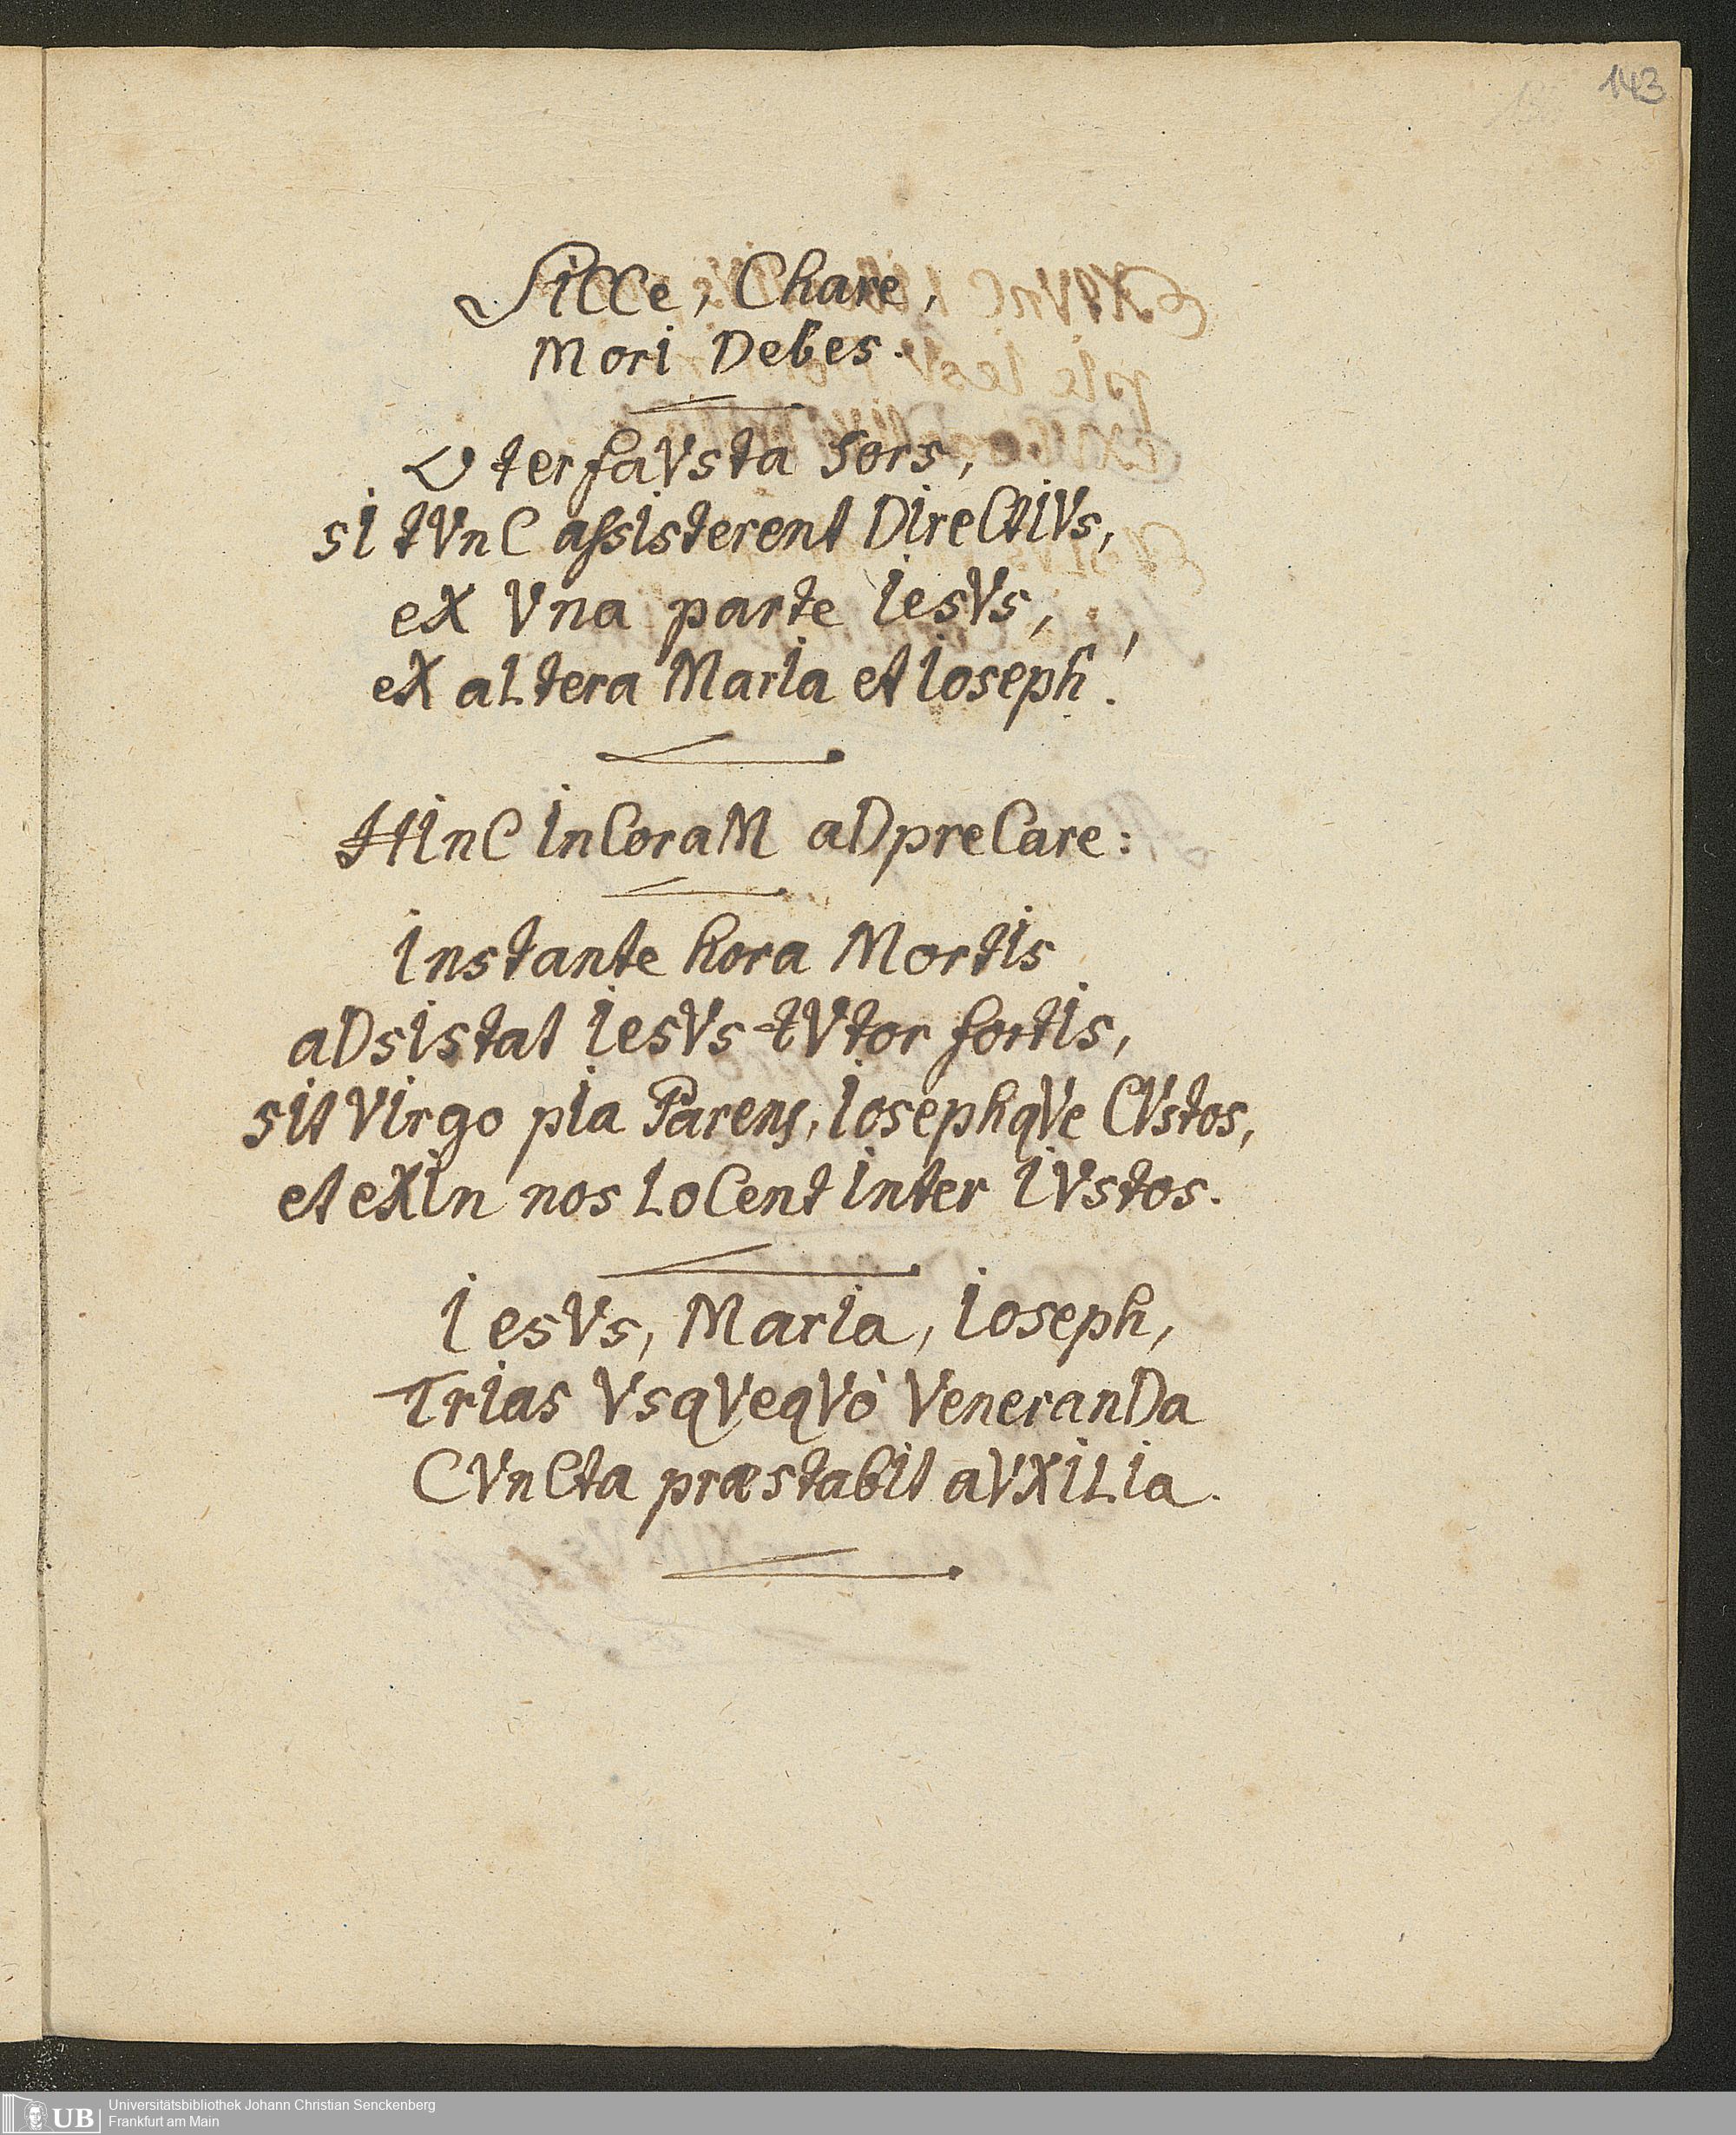 143
SICCe, Chare,
MorI Debes.
O ter faVsta sors,
sI tVnC assIsterent DIreCtIVs,
eX Vna parte IesVs,
eX aLtera MarIa et Ioseph!
HInC InCoraM aDpreCare:
Instante hora MortIs
aDsIstat IesVs tVtor fortIs,
sIt VIrgo pIa Parens, IosephqVe CVstos,
et eXIn nos LoCent Inter IVstos.
IesVs, MarIa, Ioseph,
TrIas VsqVeqVò VeneranDa
CVnCta præstabIt aVXILIa.
UB
Universitätsbibliothek Johann Christian Senckenberg
Frankfurt am Main